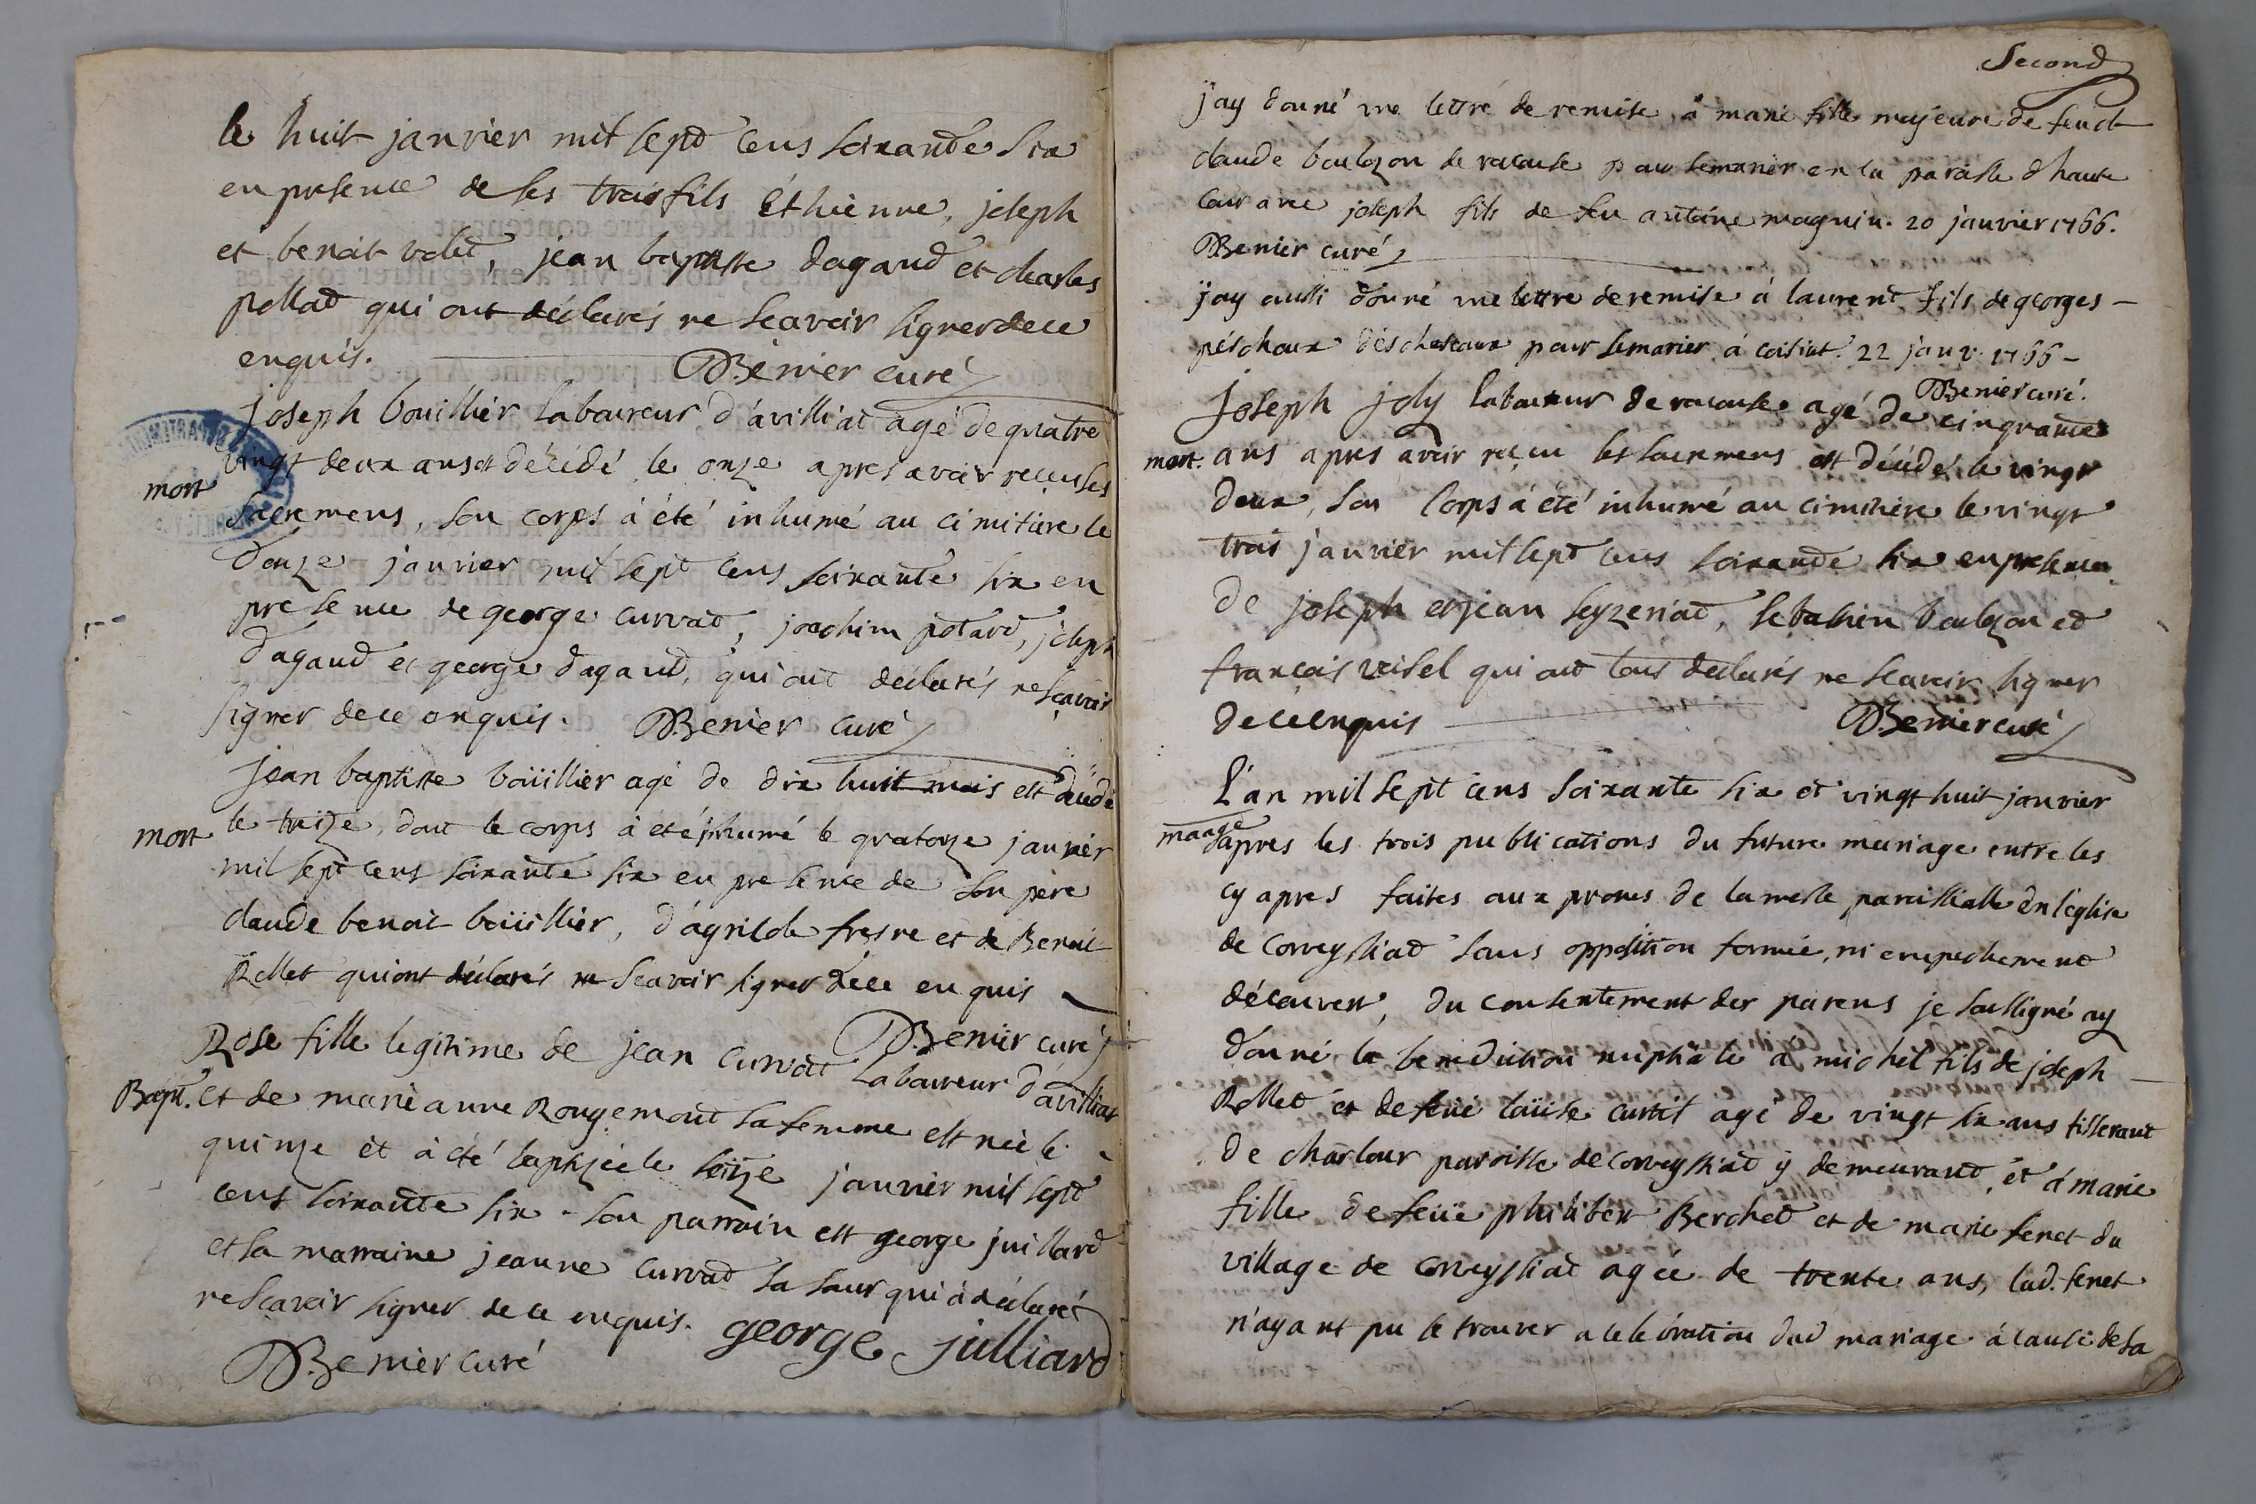 le huit janvier mil sept cens soixante six
en presence de ses trois fils Ethienne, joseph
et benoit volet, jean baptiste dagand et charles
pollat qui ont déclarés ne scavoir signer de ce
enquis.
Benier curé
joseph bouillier laboureur d'avilliat agé de quatre
vingt deux ans est décédé le onze apres avoir reçu ses
mort
sacremens, son corps à été inhumé au cimitiere le
douze janvier mil sept cens soixante six en
presence de george curvat, joachim potard, joseph
dagand et george dagand, qui ont déclarés ne scavoir
signer de ce enquis. Benier curé
jean baptiste boüillier agé de dix huit mois est décédé
mort le treize, dont le corps à été inhumé le quatorze janvier
mil sept cens soixante six en presence de son père
claude benoit boüillier, fresne et de Benoit
Rollet qui ont déclarés ne scavoir signer de ce enquis
Benier curé
Rose fille legitime de jean curvat laboureur d'avilliat
Bapt. et de marie anne Rougemont sa femme est née le
quinze et à été baptizée le seize janvier mil sept
cens soixante six. son parrain est george juillard
et sa marraine jeanne curvat sa sœur qui à déclaré
ne scavoir signer de ce enquis. george julliard
Benier curé
Second
j'ay donné une lettre de remise à marie fille majeure de feu
claude boulozon de racouse pour se marier en la paroisse d'haute
cour avec joseph fils de feu antoine magnin. 20 janvier 1766.
Benier curé
j'ay aussi donné une lettre de remise à laurent fils de georges
péschoux des chateaux pour se marier à coisiat. 22 janv. 1766
Benier curé.
joseph joly laboureur de racouse agé de cinquante
mort. ans apres avoir reçu les sacremens est décédé le vingt
deux, son corps à été inhumé au cimitiere le vingt
trois janvier mil sept cens soixante six en presence
de joseph et jean seyzeriat, sebastien boulozon et
françois voisel qui ont tous declarés ne scavoir signer
de ce enquis Benier curé
L'an mil sept cens soixante six et vingt huit janvier
mariage apres les trois publications du future mariage entre les
cy apres faites aux prones de la messe paroissialle en l'eglise
de corveyssiat sans opposition formée, ni empechement
découvert, du consentement des parens je soussigné ay
donné la benediction nuptiale a michel fils de joseph
Rollet et de feüe loüise curtil agé de vingt six ans tisserant
de charlour paroisse de corveyssiat y demeurant, et à marie
fille de feüe philibert Berchet et de marie fenet du
village de corveyssiat agée de trente ans, lad. fenet
n'ayant pu se trouver a celebration dud mariage à cause de sa